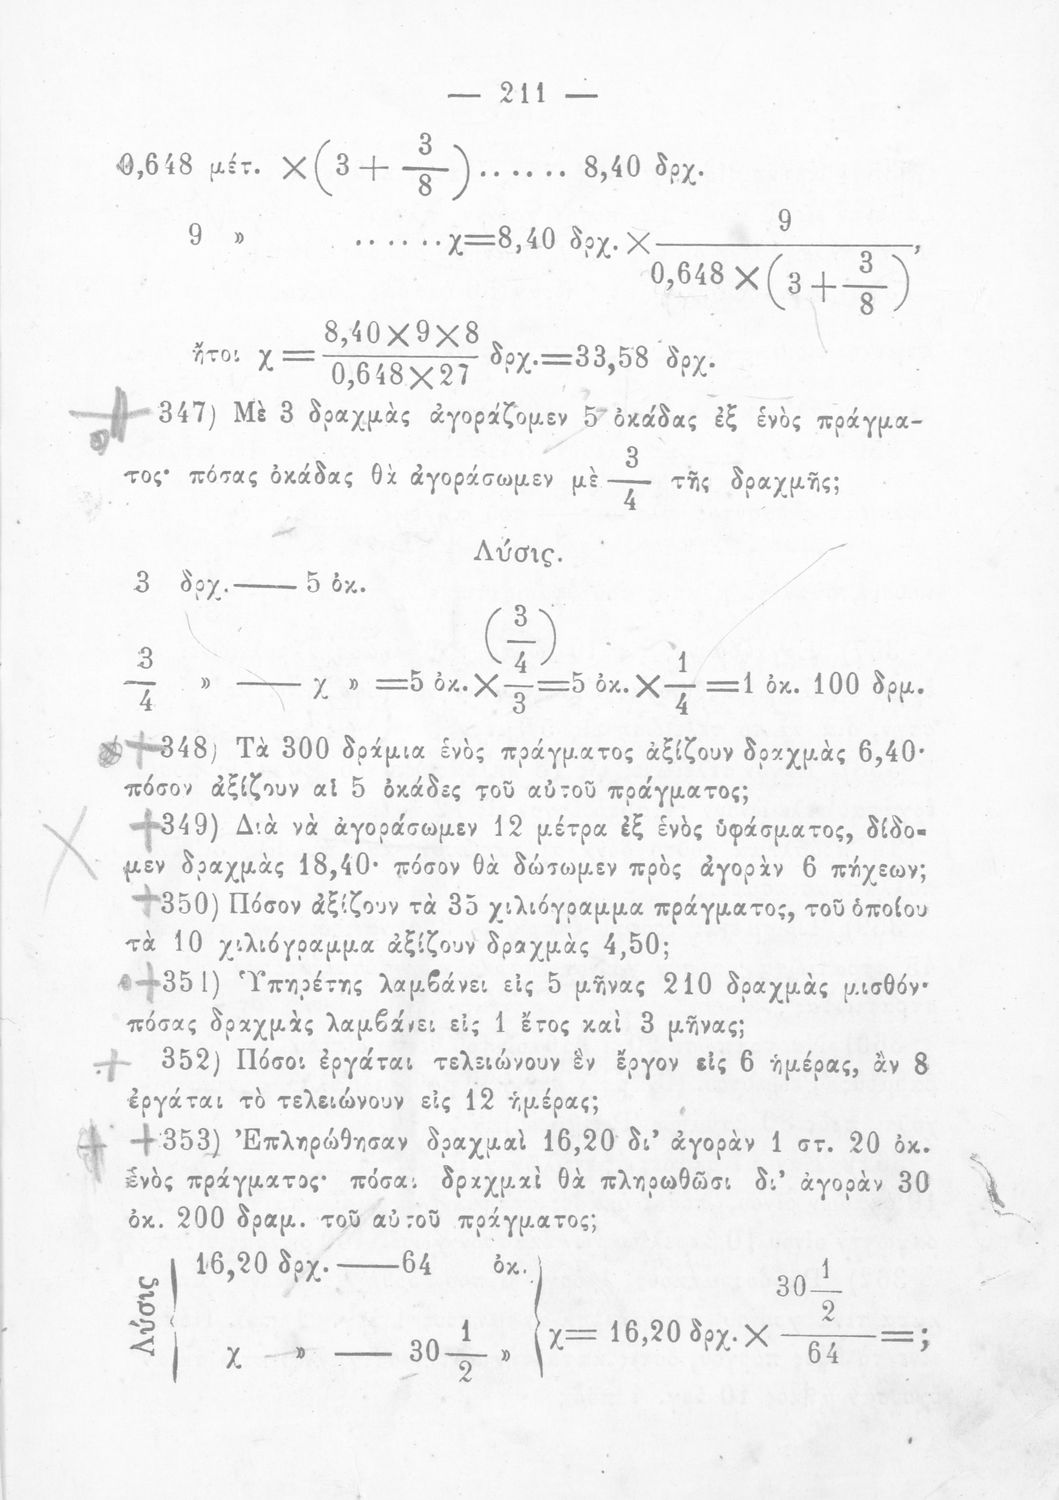 — 211 —
0,648 μέτ. × ( 3 + 3/8 ) ...... 8,40 δρχ.
9 » ...... χ = 8,40 δρχ. × 9 / 0,648 × ( 3 + 3/8 ) ,
ἤτοι χ = 8,40×9×8 / 0,648×27 δρχ. = 33,58 δρχ.
347) Μὲ 3 δραχμὰς ἀγοράζομεν 5 ὀκάδας ἐξ ἑνὸς πράγμα-
τος· πόσας ὀκάδας θὰ ἀγοράσωμεν μὲ 3/4 τῆς δραχμῆς;
Λύσις.
3 δρχ. — 5 ὀκ.
3/4 » — χ » = 5 ὀκ. × (3/4) / 3 = 5 ὀκ. × 1/4 = 1 ὀκ. 100 δρμ.
348) Τὰ 300 δράμια ἑνὸς πράγματος ἀξίζουν δραχμὰς 6,40·
πόσον ἀξίζουν αἱ 5 ὀκάδες τοῦ αὐτοῦ πράγματος;
349) Διὰ νὰ ἀγοράσωμεν 12 μέτρα ἐξ ἑνὸς ὑφάσματος, δίδο-
μεν δραχμὰς 18,40· πόσον θὰ δώσωμεν πρὸς ἀγορὰν 6 πήχεων;
350) Πόσον ἀξίζουν τὰ 35 χιλιόγραμμα πράγματος, τοῦ ὁποίου
τὰ 10 χιλιόγραμμα ἀξίζουν δραχμὰς 4,50;
351) Ὑπηρέτης λαμβάνει εἰς 5 μῆνας 210 δραχμὰς μισθόν·
πόσας δραχμὰς λαμβάνει εἰς 1 ἔτος καὶ 3 μῆνας;
352) Πόσοι ἐργάται τελειώνουν ἓν ἔργον εἰς 6 ἡμέρας, ἂν 8
ἐργάται τὸ τελειώνουν εἰς 12 ἡμέρας;
353) Ἐπληρώθησαν δραχμαὶ 16,20 δι' ἀγορὰν 1 στ. 20 ὀκ.
ἑνὸς πράγματος· πόσαι δραχμαὶ θὰ πληρωθῶσι δι' ἀγορὰν 30
ὀκ. 200 δραμ. τοῦ αὐτοῦ πράγματος;
Λύσις
16,20 δρχ. — 64 ὀκ.
χ » — 30 1/2 »
χ = 16,20 δρχ. × 30 1/2 / 64 = ;